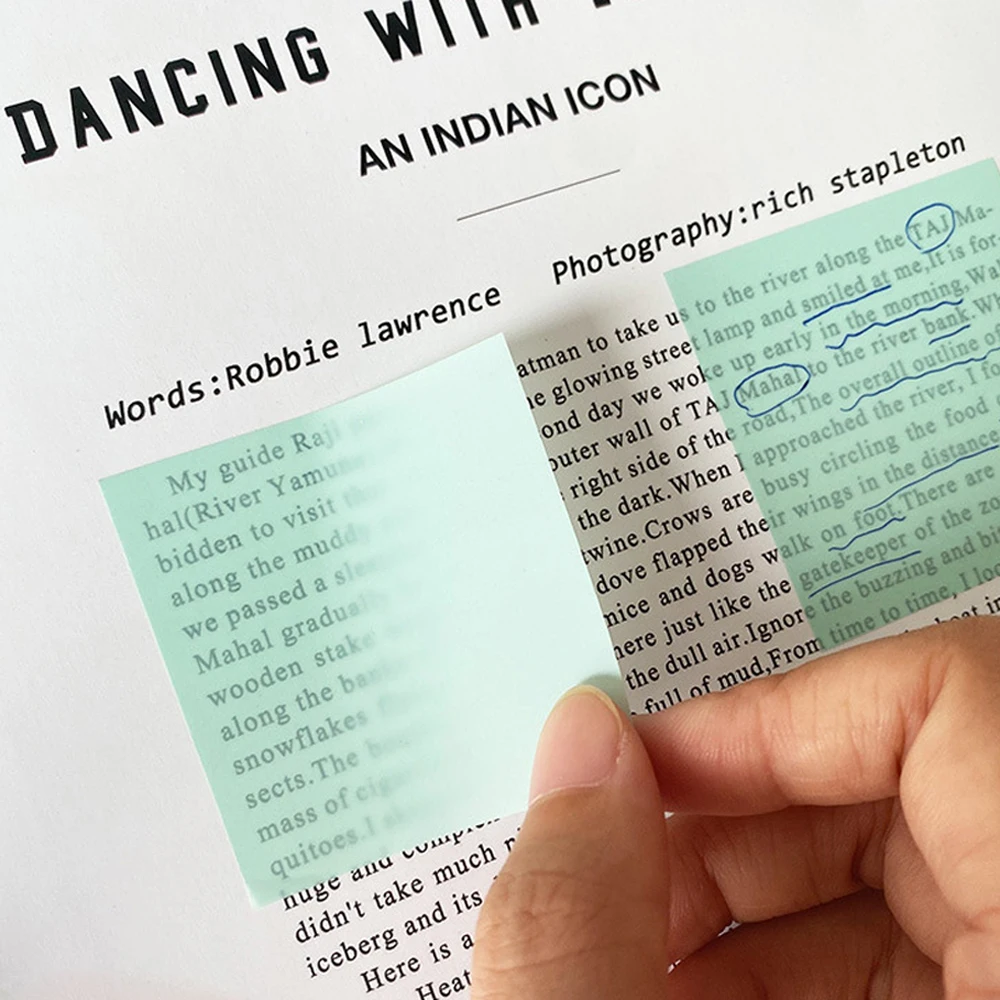 DANCING WITH
AN INDIAN ICON
Words:Robbie lawrence Photography:rich stapleton
My guide Raji atman to take us to the river along the TAJ Ma-
hal(River Yamuna glowing street lamp and smiled at me,It is for-
bidden to visit the ond day we woke up early in the morning,Wal
along the muddy outer wall of TAJ Mahal to the river bank.Wh
we passed a right side of the road,The overall outline of
Mahal gradually the dark.When I approached the river, I fo
wooden stake twine.Crows are busy circling the food
along the bank dove flapped their wings in the distance
snowflakes mice and dogs walk on foot.There are
sects.The here just like the gatekeeper of the zo
mass of the dull air.Ignore the buzzing and bi
quitoes.I full of mud,From time to time, I loo
huge and boat in
didn't take much
iceberg and its
Here is a
Heat